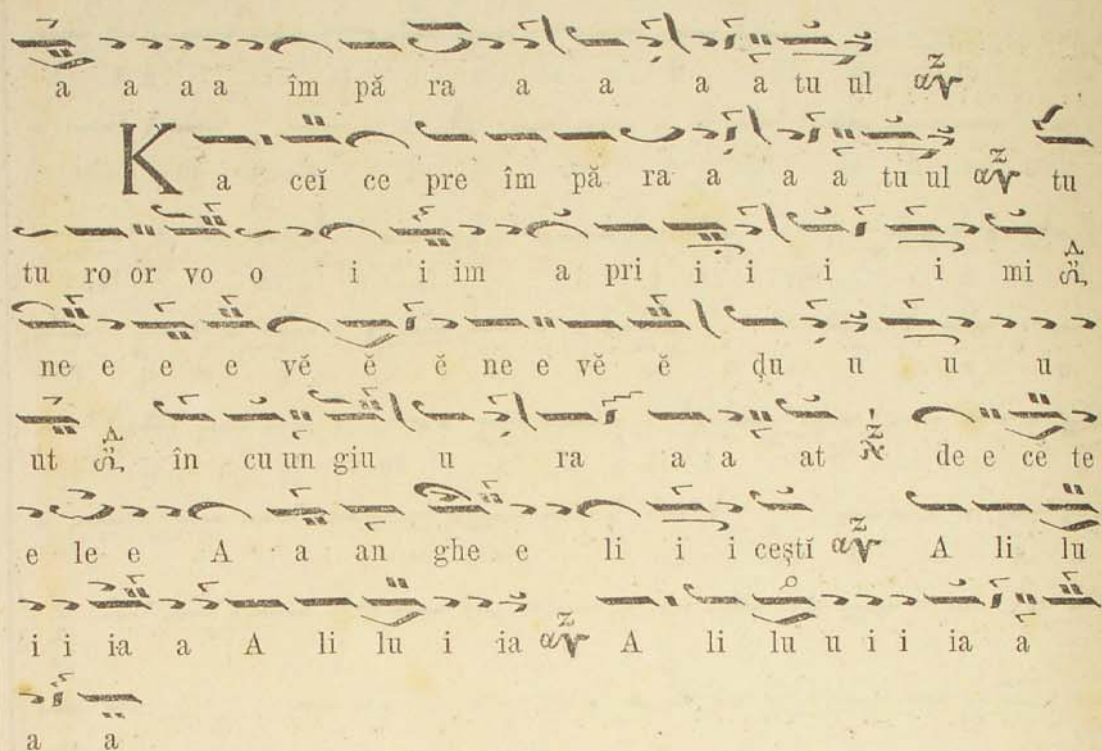 a a a a îm pă ra a a a a tu ul
Ka ceĭ ce pre îm pă ra a a a tu ul tu
tu ro or vo o i i im a pri i i i i mi
ne e e e vĕ ĕ ĕ ne e vĕ ĕ ḑu u u u
ut în cu un giu u ra a a at de e ce te
e le e A a an ghe e li i i ceștĭ A li lu
i i ia a A li lu i ia A li lu u i i ia a
a a